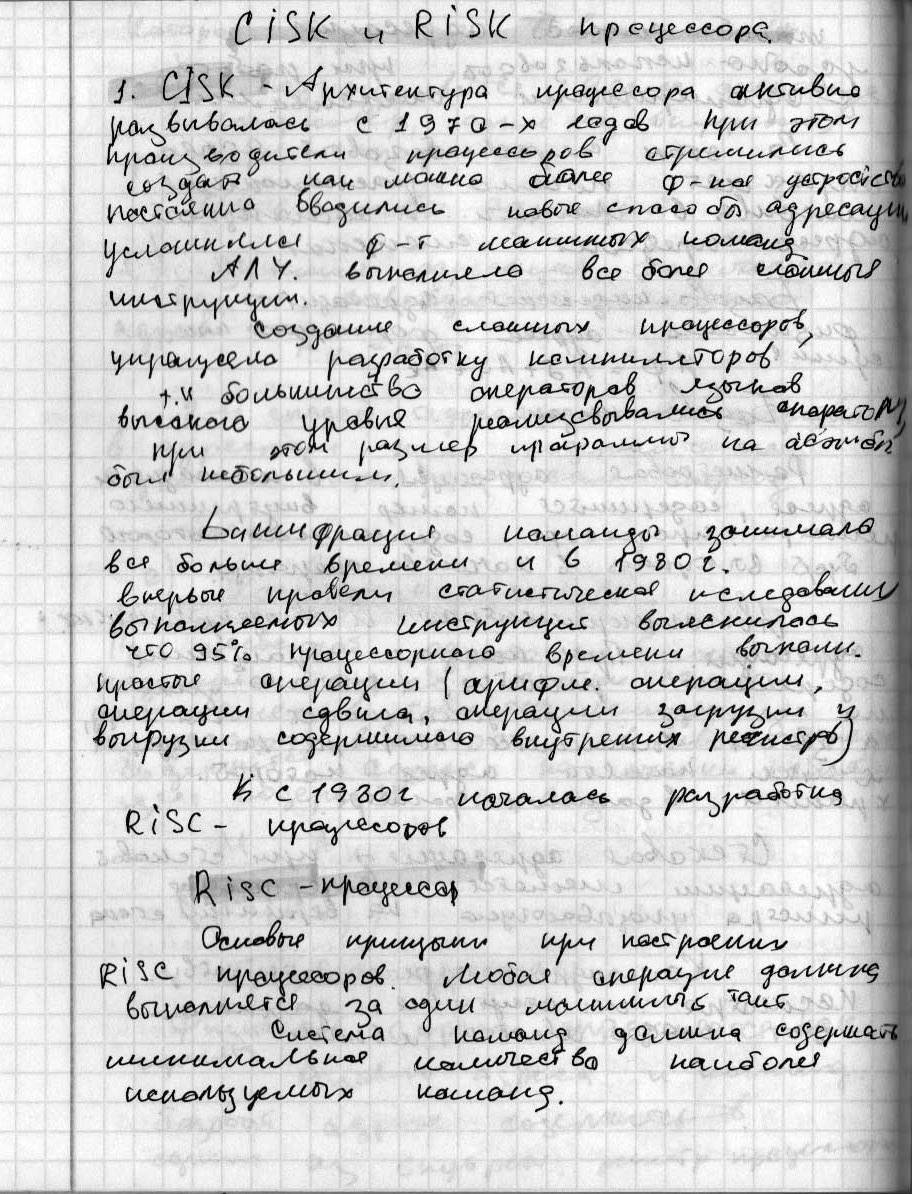 CISK и RISK процессора.
1. CISK - Архитектура процессора активно
развывалась с 1970-х годов при этом
производители процессоров стремились
создать как можно более ф-ное устройство
постоянно вводились новые способы адресации
усложнялся ф-т машинных команд
АЛУ. выполняло все более сложные
инструкции.
Создание сложных процессоров,
упращсело разработку компиляторов
т.к большинство операторов языков
высокого уровня реализвывались
при этом размер программ на
был небольшим.
Дешифрация команды занимала
все больше времени и в 1980г.
впервые провели статистическое иследование
выполняемых инструкций выяснилось
что 95% процессорного времени выполн.
простые операции (арифм. операции,
операции сдвига, операции загрузки и
выгрузки содержимого внутрених регистров)
И с 1980г началась разработка
RISC - процессоров
RISC - процессор
Основые принцыпы при построении
RISC процессоров. Любая операция должна
выполняется за один машиный такт
Система команд должна содержать
минимальное количество наиболее
используемых команд.